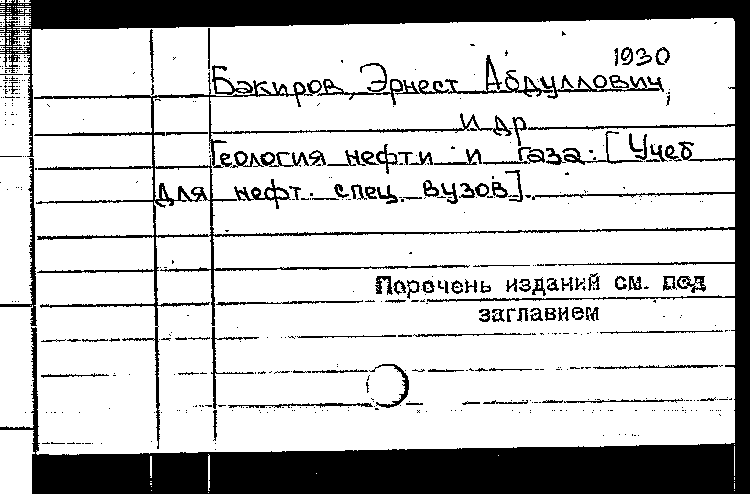 1930
Бакиров, Эрнест Абдуллович,
и др
Геология нефти и газа: [Учеб
для нефт. спец. вузов].
Перечень изданий см. под
заглавием